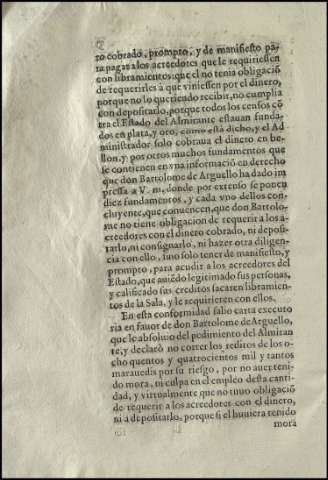 ro cobrado, prompto, y de manifiesto pa-
ra pagar a los acreedores que le requiriessen
con libramientos: que el no tenia obligaciō
de requerirles à que viniessen por el dinero,
porque no lo queriendo recibir, no cumplia
con depositarlo, porque todos los censos cō
tra el Estado del Almirante estauan funda-
dos en plata, y oro, como està dicho, y el Ad
ministrador solo cobraua el dinero en be-
llon, y por otros muchos fundamentos que
se contienen en vna informaciō en derecho
que don Bartolome de Arguello ha dado im
pressa a V. m. donde por extenso se ponen
diez fundamentos, y cada vno dellos con-
cluyente, que conuencen, que don Bartolo-
me no tiene obligacion de requerir a los a-
creedores con el dinero cobrado, ni deposi-
tarlo, ni consignarlo, ni hazer otra diligen
cia con ello, sino solo tener de manifiesto, y
prompto, para acudir a los acreedores del
Estado, que auiēdo legitimado sus personas,
y calificado sus creditos sacaren libramien-
tos de la Sala, y le requirieren con ellos.
En esta conformidad salio carta executo
ria en fauor de don Bartolome de Arguello,
que le absoluio del pedimiento del Almiran
te, y declarò no correr los reditos de los o-
cho quentos y quatrocientos mil y tantos
marauedis por su riesgo, por no auer teni-
do mora, ni culpa en el empleo desta canti-
dad, y virtualmente que no tuuo obligaciō
de requerir a los acreedores con el dinero,
ni a depositarlo, porque si el huuiera tenido
mora